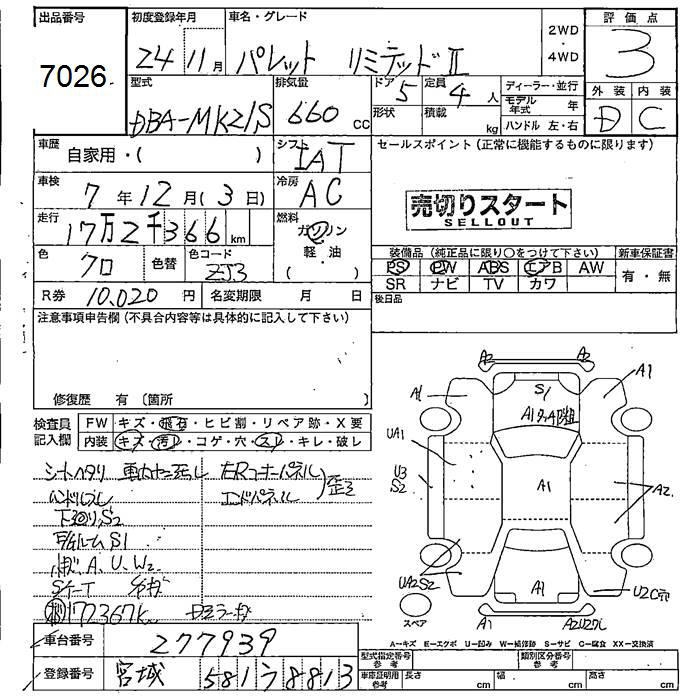 出品番号
7026
初度登録年月
24 11月
車名・グレード
パレット リミテッドⅡ
2WD
・
4WD
評価点
3
型式
DBA-MK21S
排気量
660 CC
ドア 5
形状
定員 4 人
積載 kg
ディーラー・並行
モデル年式 年
ハンドル 左・右
外装 内装
D C
車歴
自家用・( )
シフト
IAT
車検
7年12月(3日)
冷房
AC
走行
17万2千366km
燃料
ガソリン
軽・油
( )
色
クロ
色替
色コード
ZJ3
R券 10,020円
名変期限 月 日
セールスポイント(正常に機能するものに限ります)
売切りスタート
SELLOUT
装備品(純正品に限り○をつけて下さい)
新車保証書
PS PW ABS エアB AW
SR ナビ TV カワ
有・無
後日品
注意事項申告欄(不具合内容等は具体的に記入して下さい)
修復歴 有(箇所 )
検査員
記入欄
FW キズ・飛石・ヒビ割・リペア跡・X要
内装 キズ・汚レ・コゲ・穴・スレ・キレ・破レ
シートヘタリ
ハンドルスレ
下廻りS2
A、U、W2
172367k
エンドパネル
歪ミ
A2 A2
A1 A1
S1
UA1
U3
S2
A1
A2
UA2 S2
A1
U2C穴
A1
スペア
A=キズ E=エクボ U=凹み W=補修跡 S=サビ C=腐食 XX=交換済
車台番号
277939
型式指定番号
参考
類別区分番号
参考
登録番号
宮城 581う8813
車庫証明用
参考
長さ cm 幅 cm 高さ cm